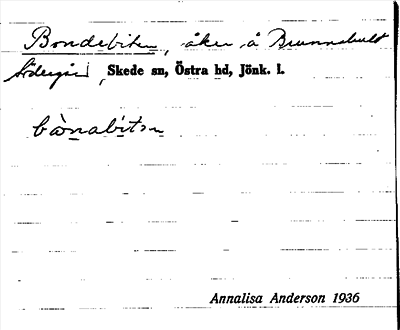 Bondebiten, åker å Brunnshult
Södergård, Skede sn, Östra hd, Jönk. l.
bònabitən
Annalisa Anderson 1936